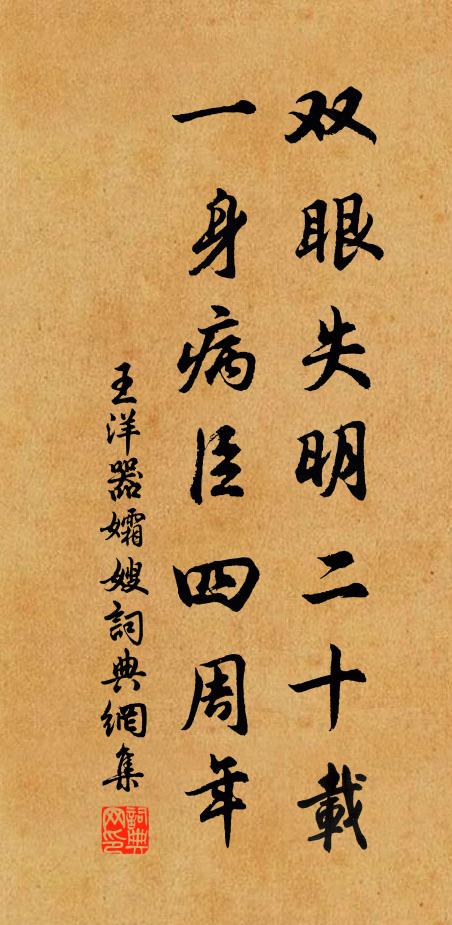 双眼失明二十載
一身病臣四周年
王洋器孀嫂詞典網集
詞典网印